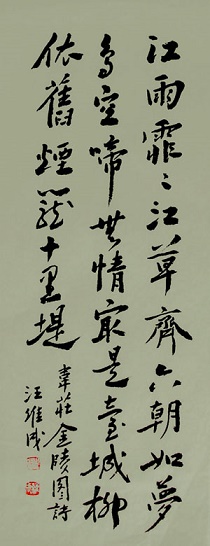 江雨霏〻江草齊六朝如夢
鳥空啼無情最是臺城柳
依舊煙籠十里堤
韋莊金陵圖詩
汪維成